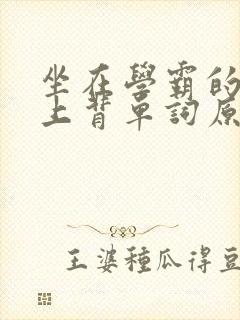 坐在學霸的
上背單詞原
王婆種瓜得豆